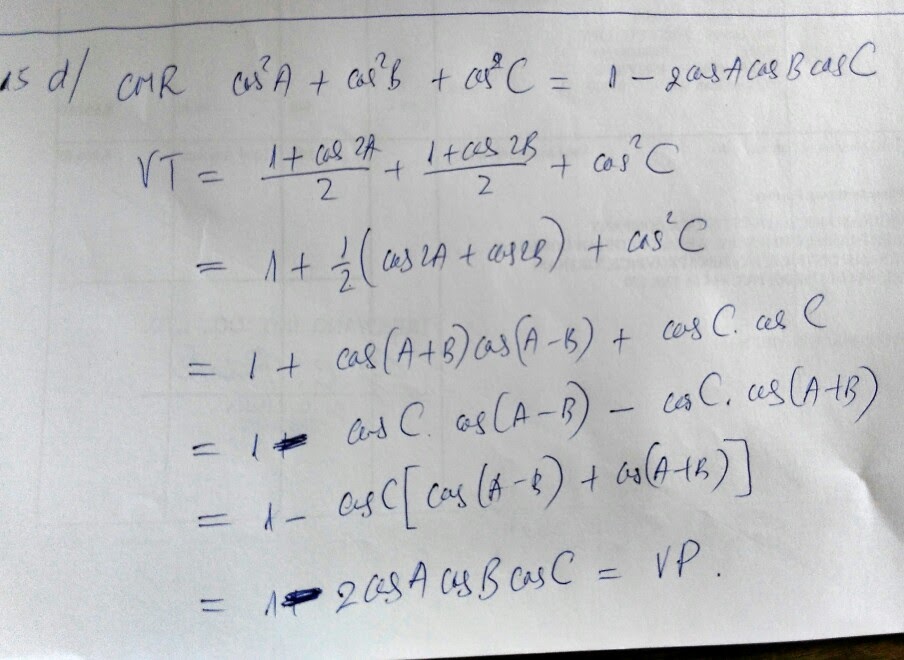 15 d/ CMR cos²A + cos²B + cos²C = 1 - 2cosAcosBcosC
VT = (1 + cos 2A)/2 + (1 + cos 2B)/2 + cos²C
= 1 + 1/2 (cos2A + cos2B) + cos²C
= 1 + cos(A+B)cos(A-B) + cosC. cosC
= 1 - cosC. cos(A-B) - cosC. cos(A+B)
= 1 - cosC[cos(A-B) + cos(A+B)]
= 1 - 2cosAcosBcosC = VP.